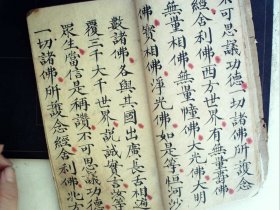 不可思議功德一切諸佛所護念
經舍利佛西方世界有無量壽佛
無量相佛無量幢佛大光佛大明
佛寶相佛淨光佛如是等恒河沙
數諸佛各與其國出廣長舌相遍
覆三千大千世界說誠實言汝等
眾生當信是稱讚不可思議功德
一切諸佛所護念經舍利佛北方